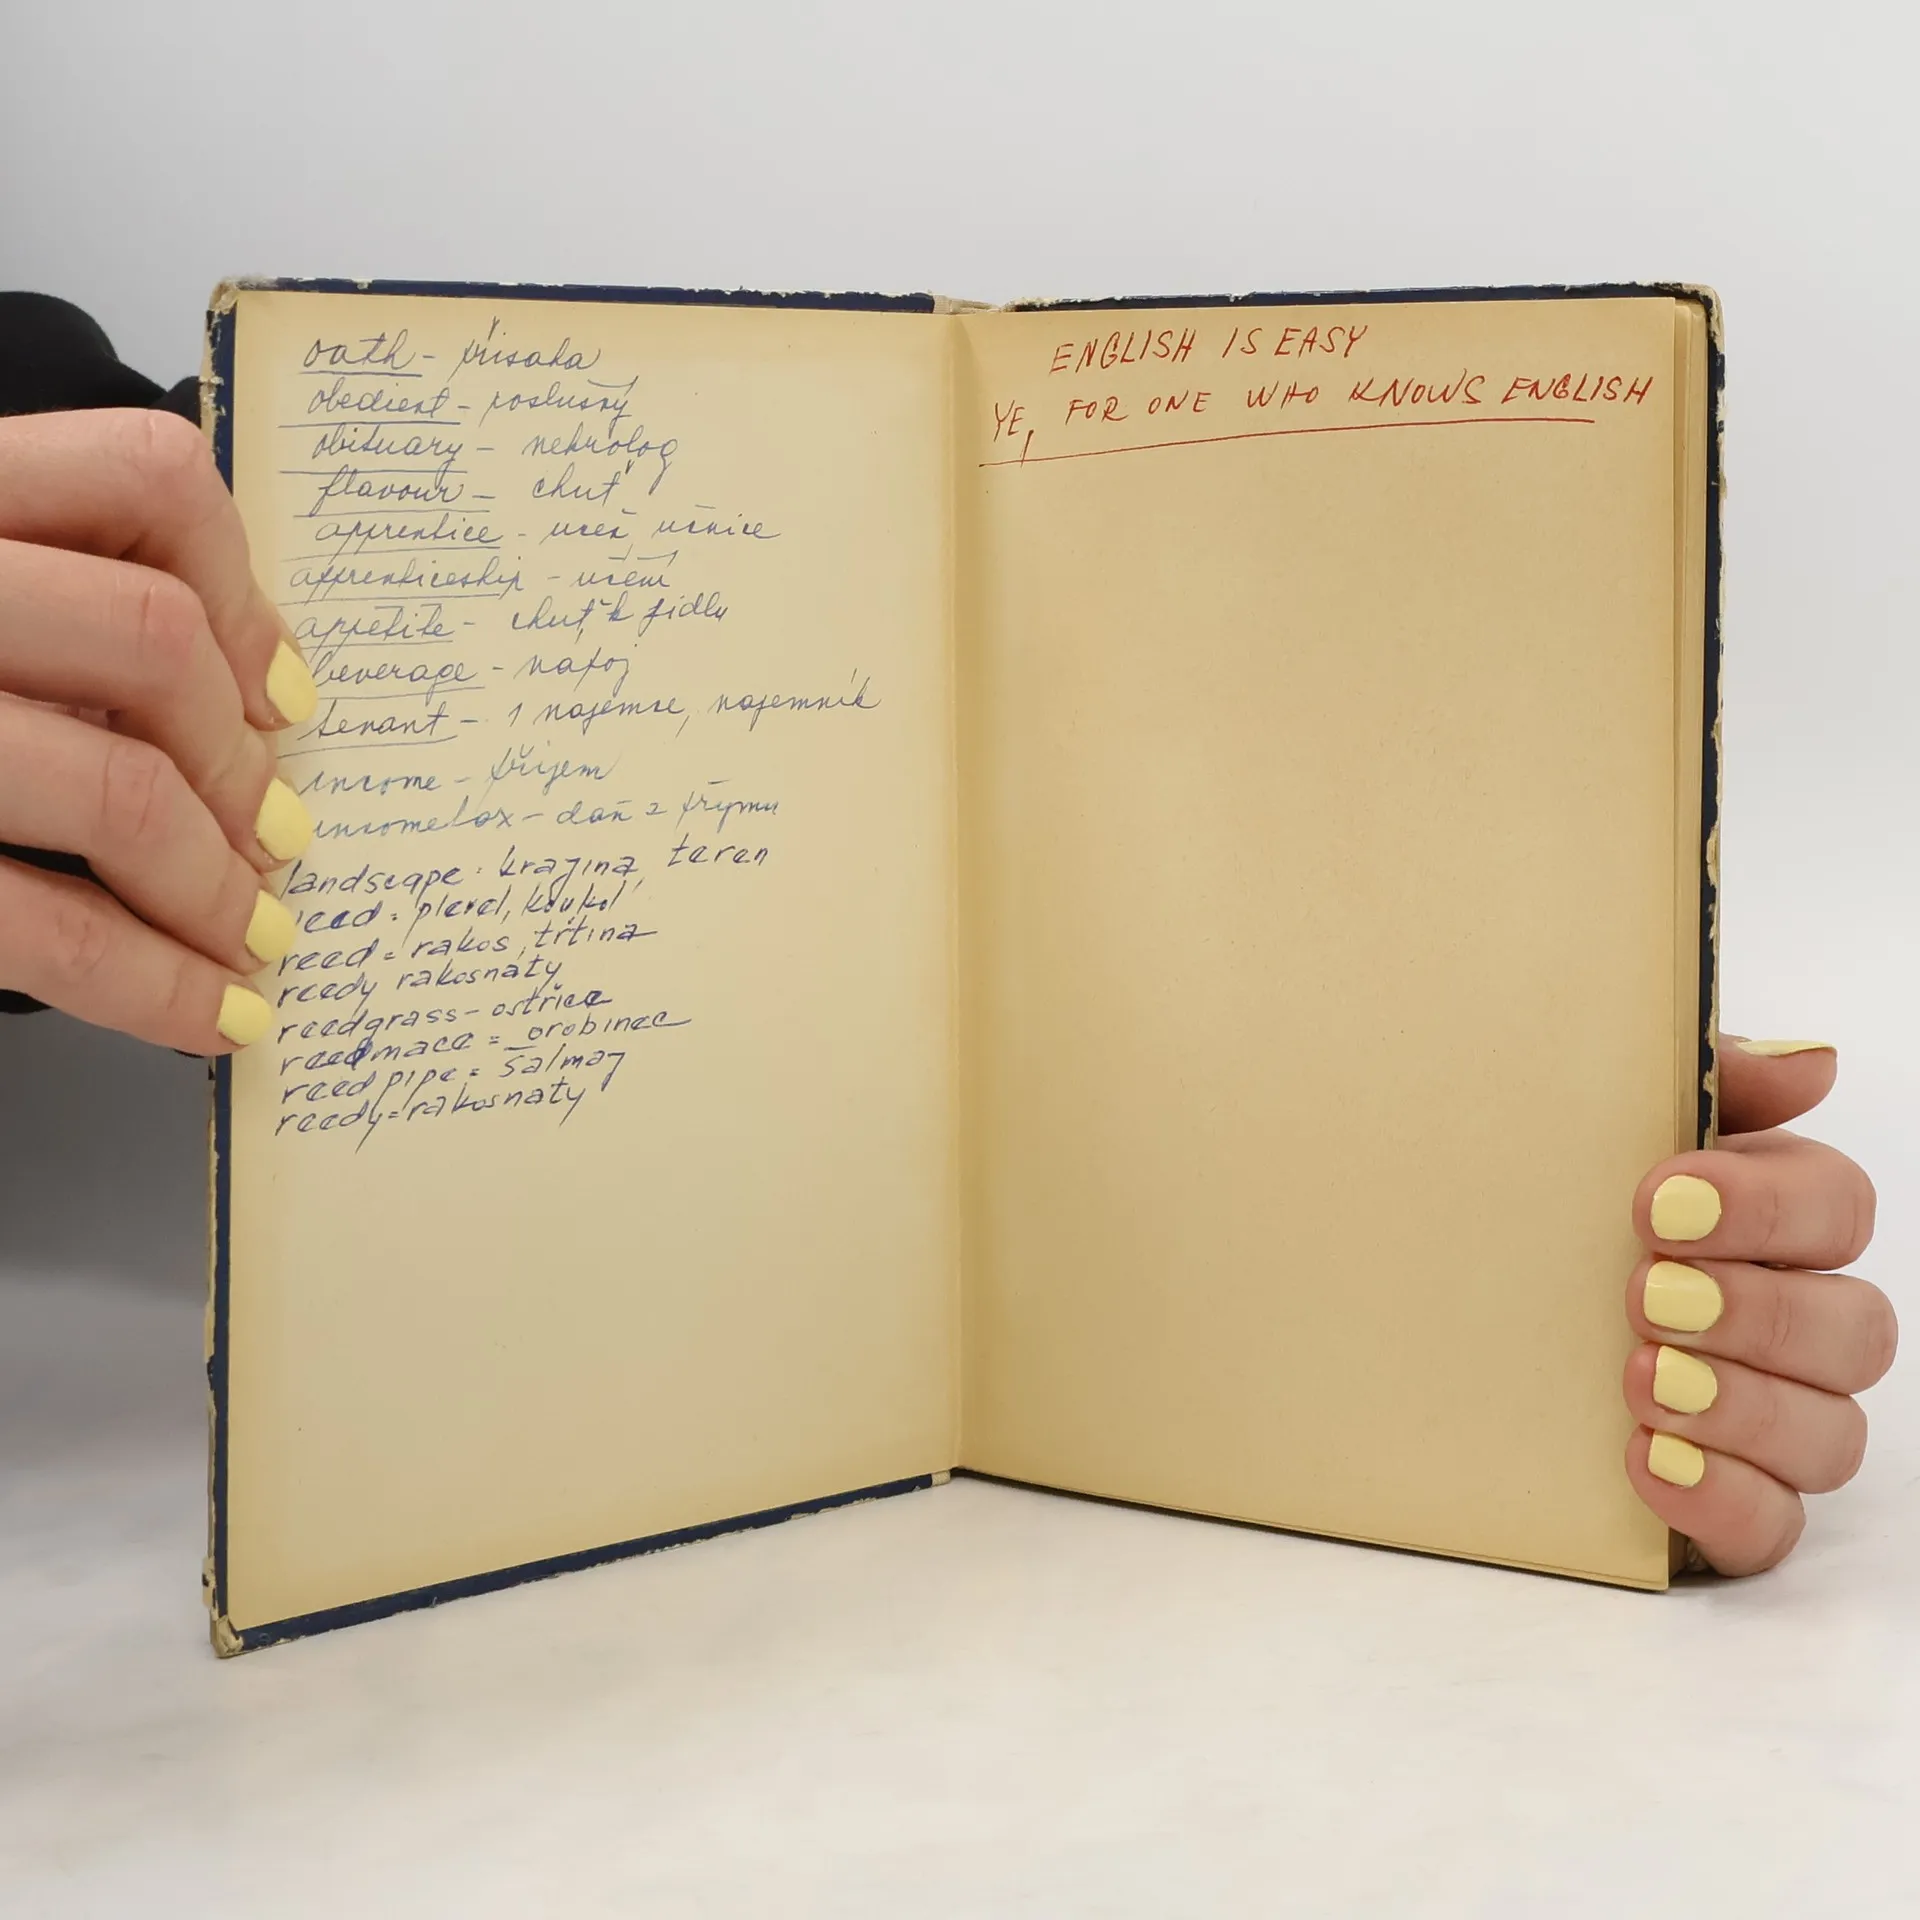 oath - přisaha
obedient - poslušný
obituary - nekrolog
flavour - chuť
apprentice - učeň, učnice
apprenticeship - učení
appetite - chuť k jidlu
beverage - napoj
tenant - 1 najemce, najemník
income - přijem
incometax - daň z přijmu
landscape : krajina, teren
weed = plevel, koukol
reed = rakos, třtina
reedy rakosnáty
reedgrass - ostřice
reedmace = orobinec
reed pipe = šalmaj
reedy = rakosnaty
ENGLISH IS EASY
YE, FOR ONE WHO KNOWS ENGLISH